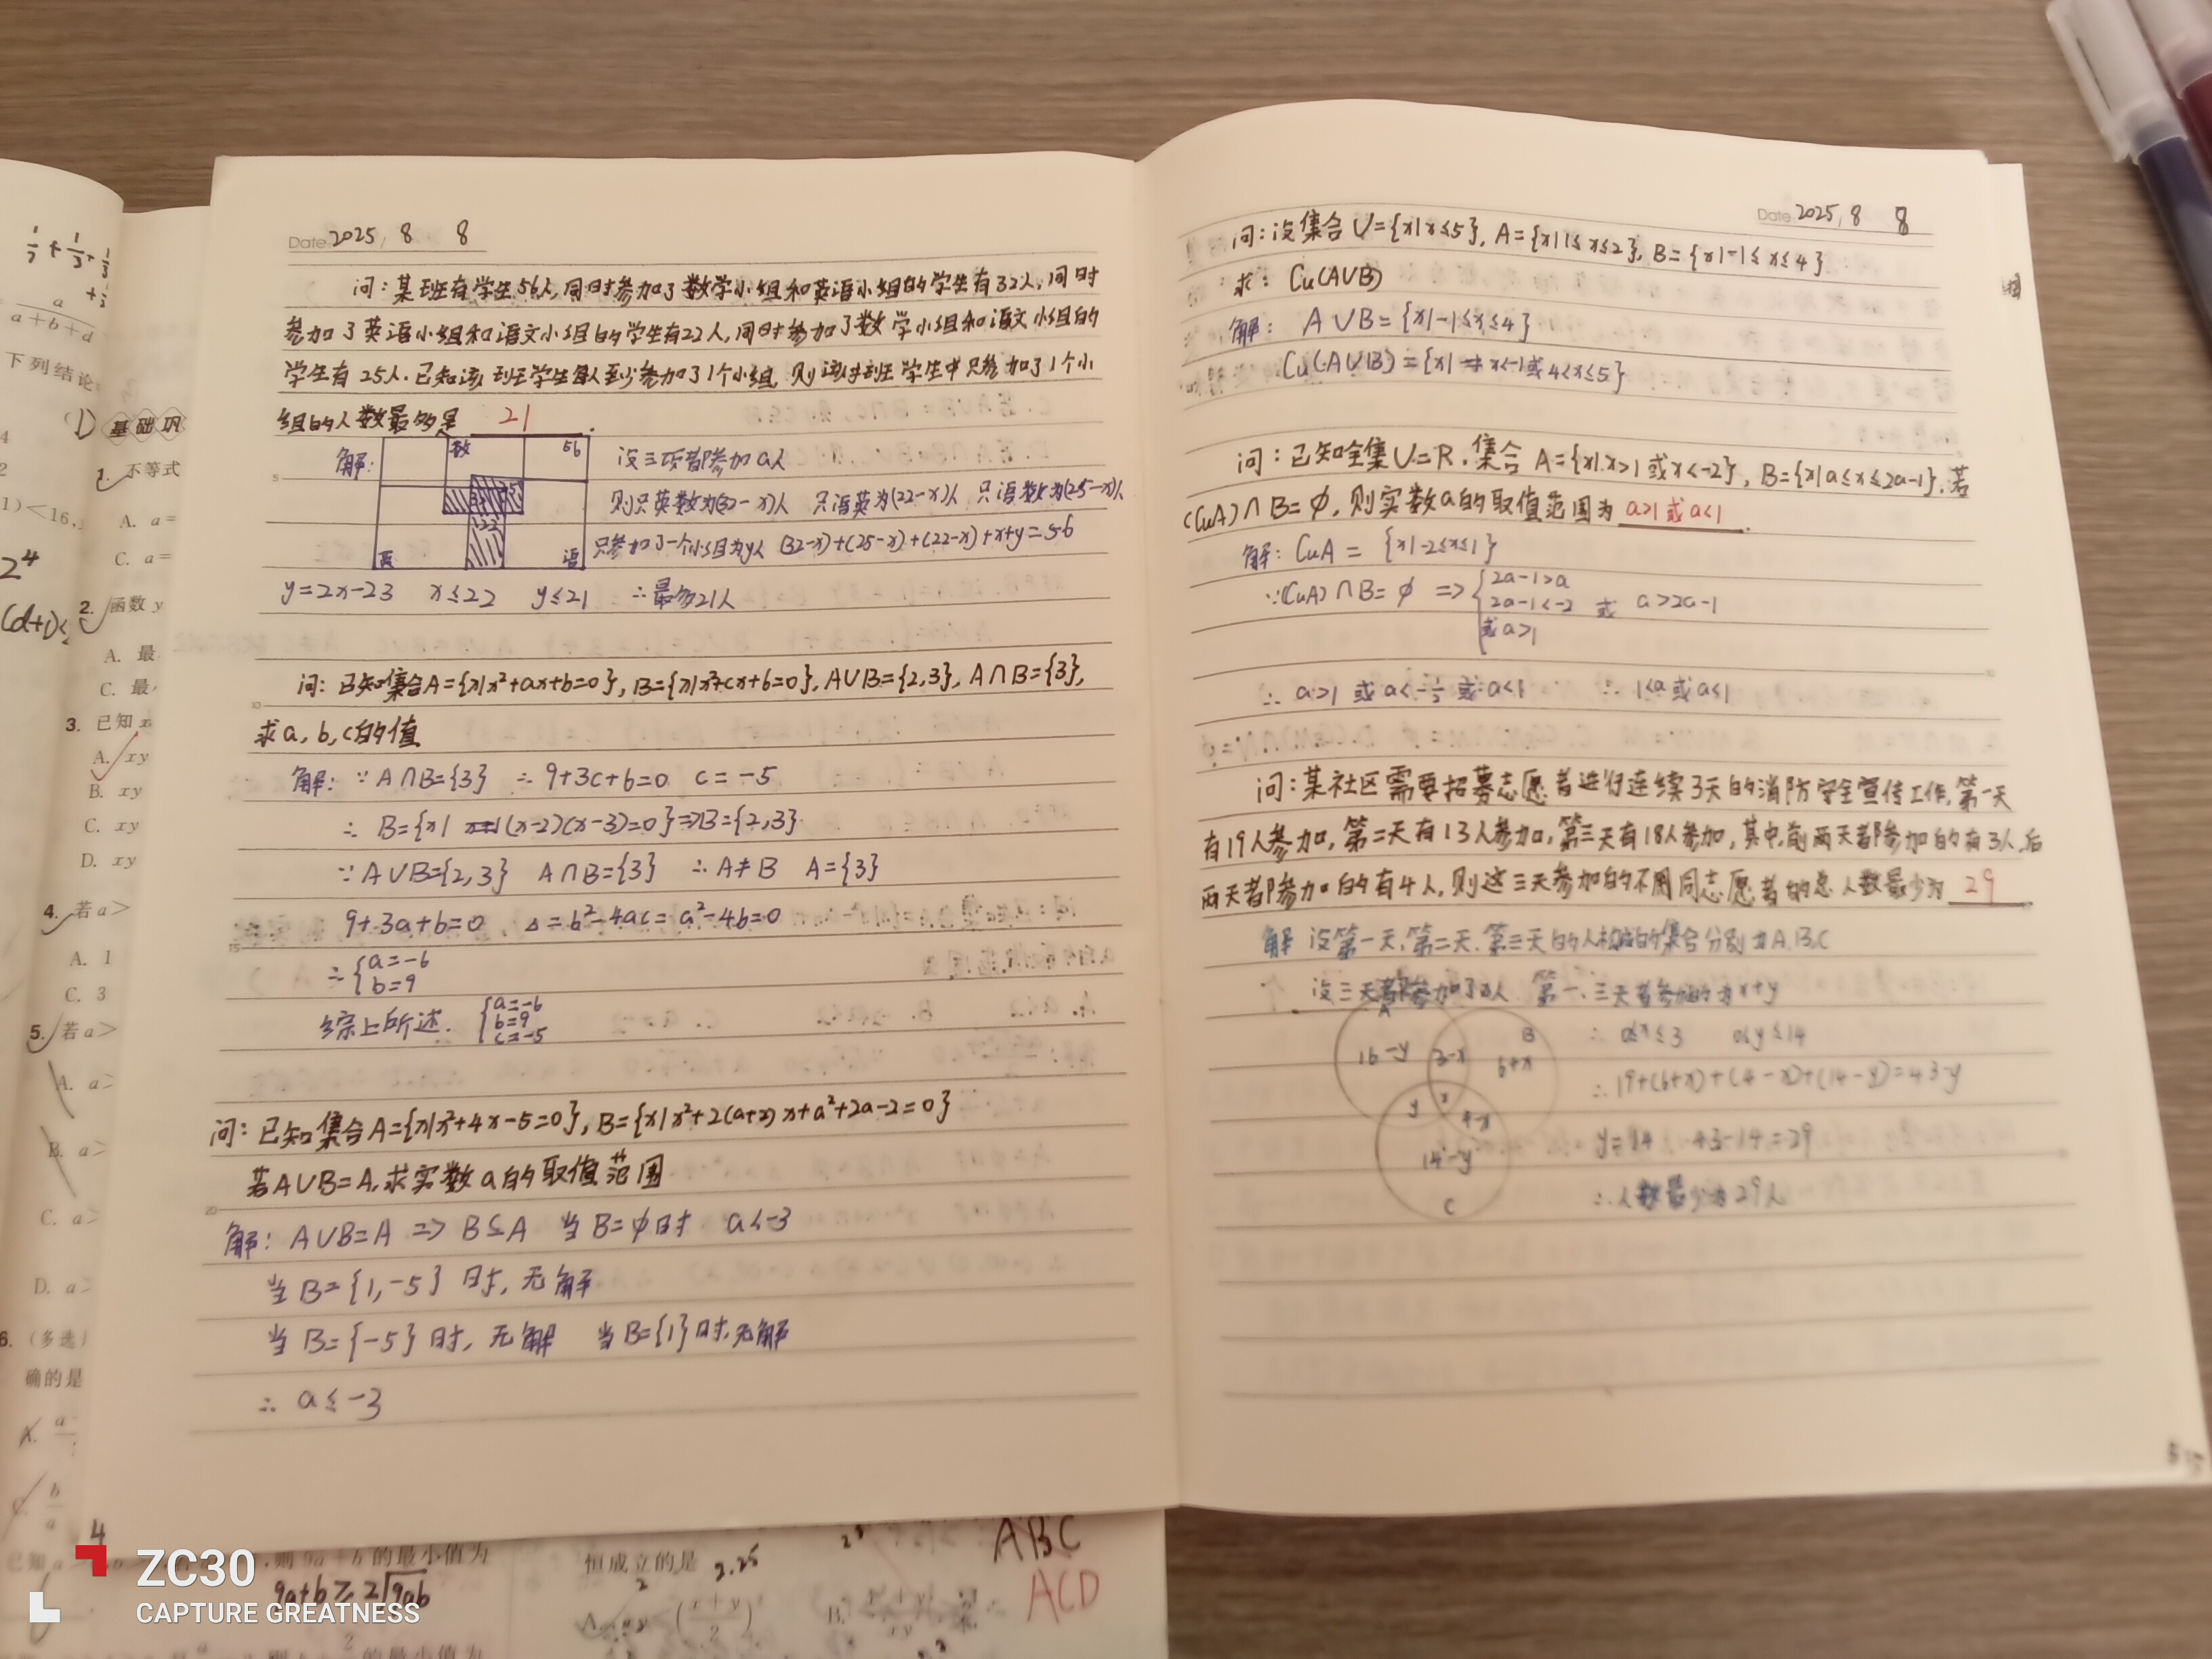 Date 2025/ 8 8
问:某班有学生56人,同时参加了数学小组和英语小组的学生有32人,同时
参加了英语小组和语文小组的学生有22人,同时参加了数学小组和语文小组的
学生有25人.已知该班学生每人至少参加了1个小组,则该班学生中只参加了1个小
组的人数最多是 21 .
解:
数
56
英
语
设三项都参加a人
则只英数为(32-x)人 只语英为(22-x)人 只语数为(25-x)人
只参加了一个小组为y人 (32-x)+(25-x)+(22-x)+x+y=56
y=2x-23 x≤22 y≤21 ∴最多21人
问:已知集合A={x|x²+ax+b=0},B={x|x²+cx+6=0},A∪B={2,3},A∩B={3},
求a,b,c的值
解:∵A∩B={3} ∴9+3c+6=0 c=-5
∴B={x|(x-2)(x-3)=0}⇒B={2,3}
∵A∪B={2,3} A∩B={3} ∴A≠B A={3}
9+3a+b=0 Δ=b²-4ac=a²-4b=0
∴{a=-6
b=9
综上所述. {a=-6
b=9
c=-5
问:已知集合A={x|x²+4x-5=0},B={x|x²+2(a+2)x+a²+2a-2=0}
若A∪B=A,求实数a的取值范围
解:A∪B=A ⇒ B⊆A 当B=∅时 a<-3
当B={1,-5}时,无解
当B={-5}时,无解 当B={1}时,无解
∴a≤-3
Date 2025/ 8 8
问:设集合U={x|x≤5},A={x|1≤x≤2},B={x|-1≤x≤4}
求:CU(A∪B)
解: A∪B={x|-1≤x≤4}
CU(A∪B)={x|x<-1或4<x≤5}
问:已知全集U=R.集合A={x|x>1或x<-2},B={x|a≤x≤2a-1}.若
(CUA)∩B=∅,则实数a的取值范围为 a>1或a<1 .
解:CUA={x|-2≤x≤1}
∵(CUA)∩B=∅ ⇒ {2a-1>a
2a-1<-2 或 a>2a-1
或a>1
∴a>1或a<-½或a<1 ∴1<a或a<1
问:某社区需要招募志愿者进行连续3天的消防安全宣传工作,第一天
有19人参加,第二天有13人参加,第三天有18人参加,其中,前两天都参加的有3人,后
两天都参加的有4人,则这三天参加的不同志愿者的总人数最少为 29
解 设第一天,第二天,第三天的人构成的集合分别为A,B,C
设三天都参加了x人 第一、三天都参加的为x+y
A
B
16-y
3-x
6+x
y
x
4-x
14-y
C
∴0≤x≤3 0≤y≤14
∴19+(6+x)+(4-x)+(14-y)=43-y
y=14 43-14=29
∴人数最少为29人
a
a+b+d
下列结论
1)<16,
基础巩
1. 不等式
A. a=
C. a=
2. 函数 y
A. 最
C. 最
3. 已知 x
A. xy
B. xy
C. xy
D. xy
4. 若 a>
A. 1
C. 3
5. 若 a>
A. a>
B. a>
C. a>
D. a>
6. (多选)
确的是
则 9a+b 的最小值为
9a+b≥2√9ab
恒成立的是 2.25
ABC
ACD
ZC30
CAPTURE GREATNESS